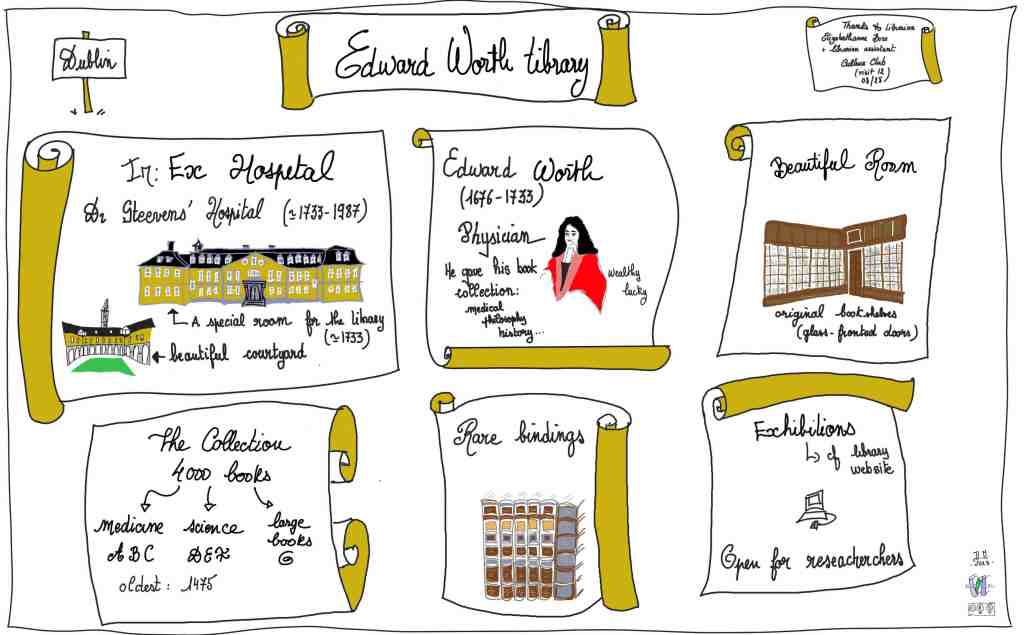 Dublin
Edward Worth Library
Thanks to Librarian
Elizabethanne Boran
+ librarian assistant
Culture Club
(visit 12
08/25)
In: Ex Hospital
Dr Steevens' Hospital (≈1733-1987)
A special room for the Library
(≈1733)
beautiful courtyard
Edward Worth
(1676-1733)
Physician
He gave his book
collection:
medical
philosophy
history...
wealthy
lucky
Beautiful Room
original bookshelves
(glass-fronted doors)
The Collection
4000 books
medicine science large
books
ABC DEF G
oldest: 1475
Rare bindings
Exhibitions
cf library
website
Open for reseacherchers